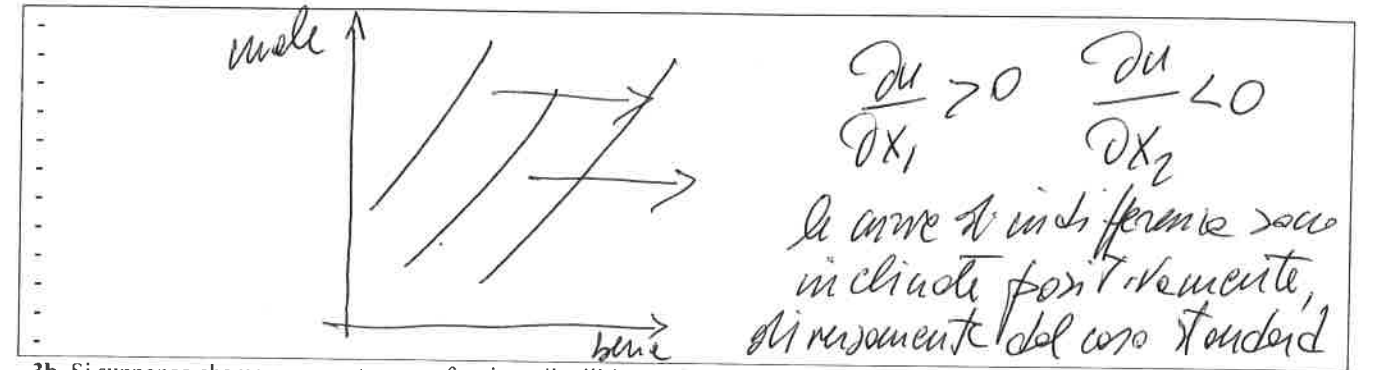 male
bene
∂u/∂x₁ > 0 ∂u/∂x₂ < 0
le curve di indifferenza sono
inclinate positivamente,
diversamente dal caso standard